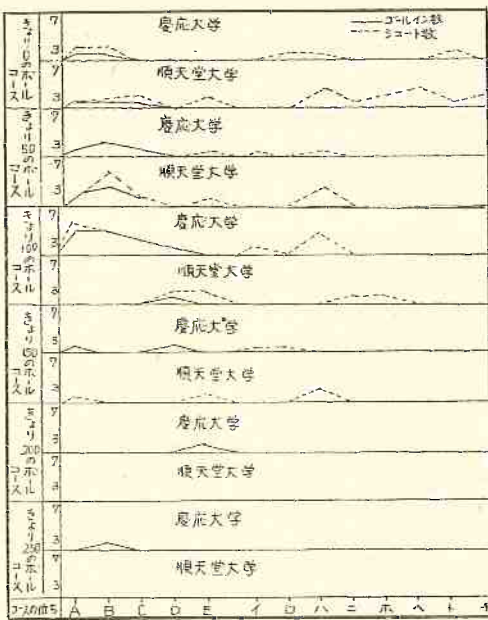 ゴールイン数
シュート数
きょり0のボールコース
7
3
慶応大学
7
3
順天堂大学
きょり50のボールコース
7
3
慶応大学
7
3
順天堂大学
きょり100のボールコース
7
3
慶応大学
7
3
順天堂大学
きょり150のボールコース
7
3
慶応大学
7
3
順天堂大学
きょり200のボールコース
7
3
慶応大学
7
3
順天堂大学
きょり250のボールコース
7
3
慶応大学
7
3
順天堂大学
A B C D E イ ロ ハ ニ ホ ヘ ト チ